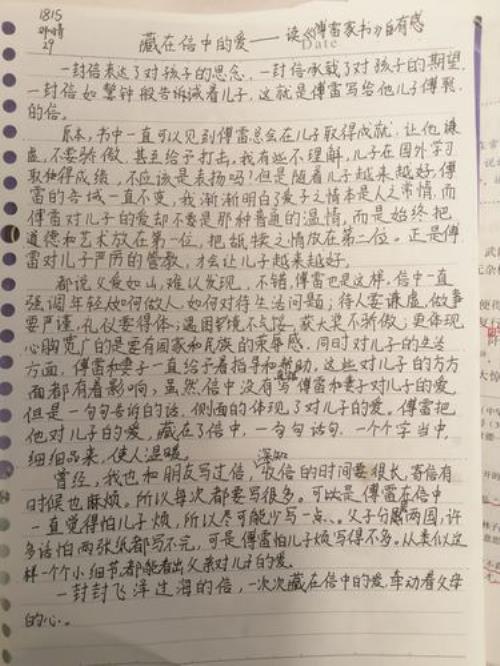 1815
29
藏在信中的爱——读《傅雷家书》有感
Date
一封信表达了对孩子的思念,一封信承载了对孩子的期望,
一封信如警钟般告诉诫着儿子,这就是傅雷写给他儿子傅聪
的信。
原本,书中一直可以见到傅雷总会在儿子取得成就,让他谦
虚,不要骄傲,甚至给予打击,我有些不理解,儿子在国外学习
取得成绩,不应该是表扬吗?但是随着儿子越来越好,傅
雷的告诫一直不变,我渐渐明白了爱子之情本是人之常情,而
傅雷对儿子的爱却不要是那种普通的温情,而是始终把
道德和艺术放在第一位,把舐犊之情放在第二位。正是傅
雷对儿子严厉的管教,才会让儿子越来越好。
都说父爱如山,难以发现,不错,傅雷也是这样,信中一直
强调年轻人如何做人,如何对待生活问题;待人要谦虚,做事
要严谨,礼仪要得体;遇困境不气馁,获大奖不骄傲;更体现
心胸宽广的是要有国家和民族的荣辱感,同时对儿子的生活
方面,傅雷和妻子一直给予着指导和帮助,这些对儿子的方方
面都有着影响,虽然信中没有写傅雷和妻子对儿子的爱
但是一句句告诉的话,侧面的体现了对儿子的爱。傅雷把
他对儿子的爱,藏在了信中,一句句话句,一个个字当中,
细细品来,使人温暖。
曾经,我也和朋友写过信,深知收信的时间要很长,寄信有
时候也麻烦。所以每次都要写很多。可以是傅雷在信中
一直觉得怕儿子烦,所以尽可能少写一点、。父子分隔两国,许
多话怕两张纸都写不完,可是傅雷怕儿子烦写得不多。从类似这
样一个个小细节,都能看出父亲对儿子的爱。
一封封飞洋过海的信,一次次藏在信中的爱,牵动着父母
的心。